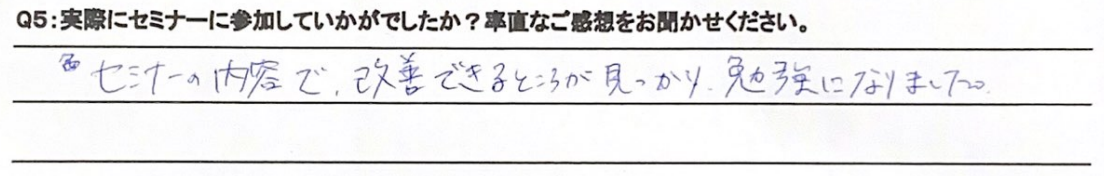 Q5:実際にセミナーに参加していかがでしたか？率直なご感想をお聞かせください。
セミナーの内容で、改善できるところが見つかり、勉強になりました。